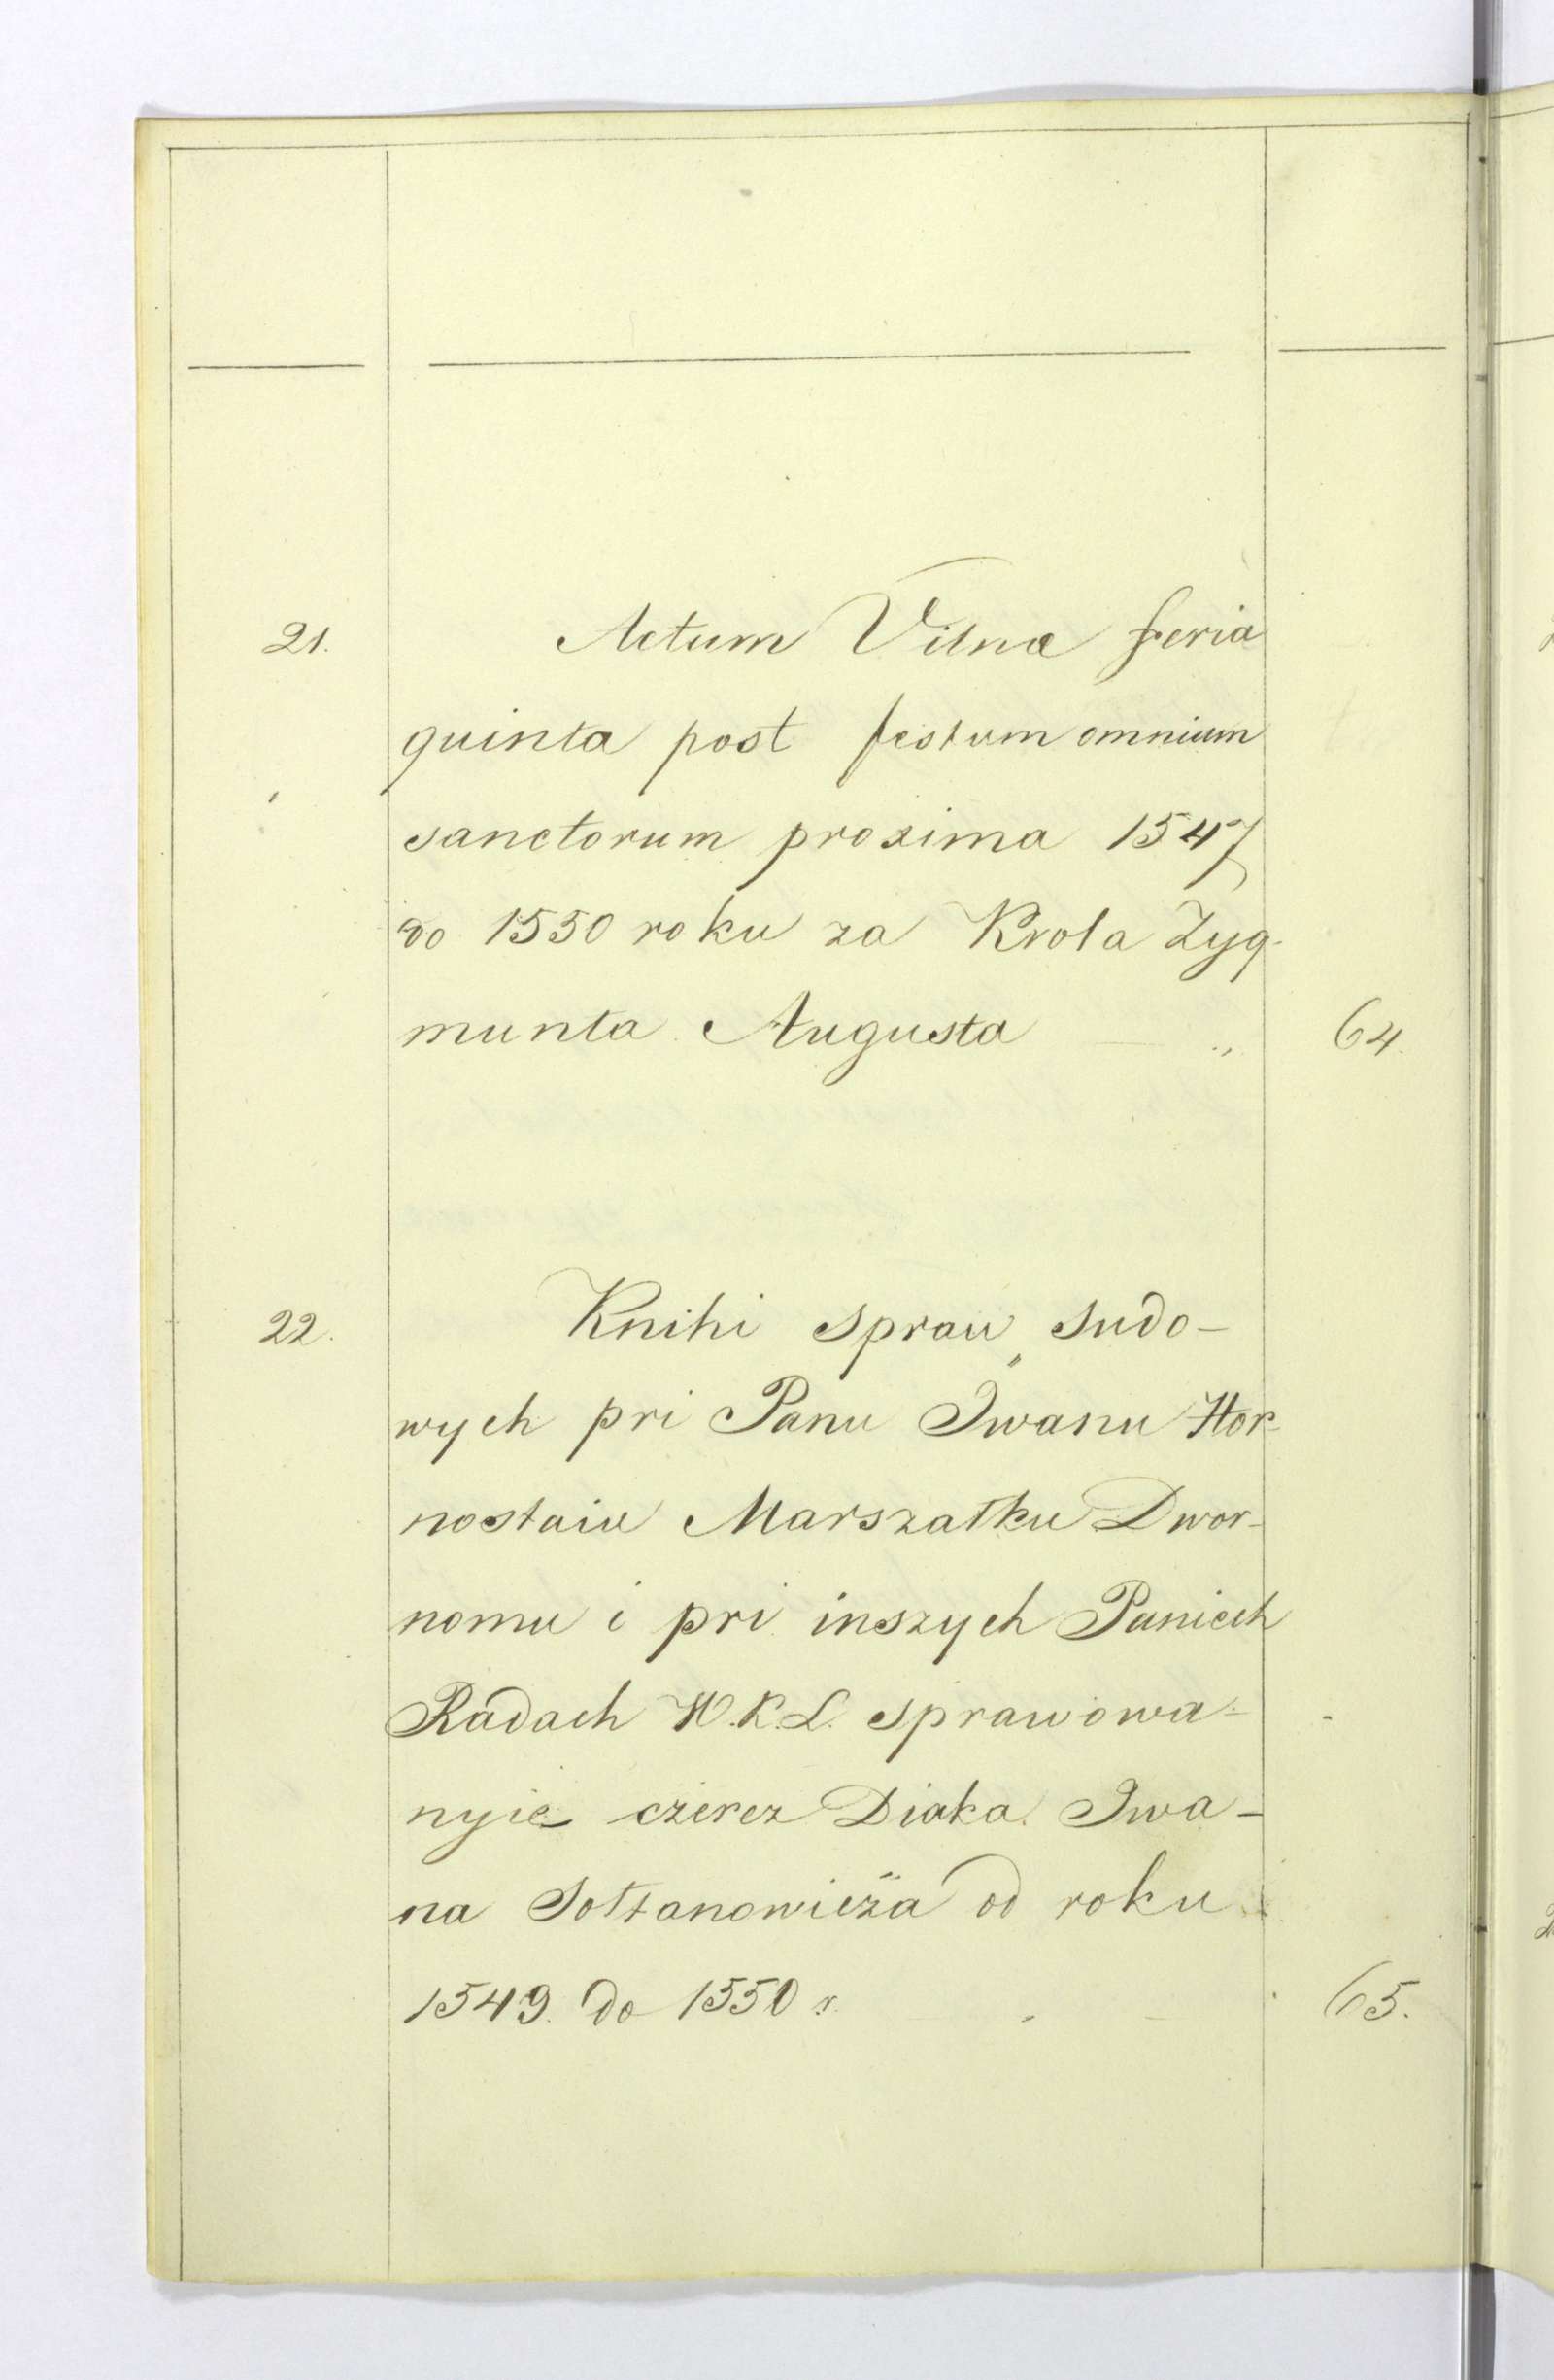 21. Actum Vilnæ feria
quinta post festum omnium
sanctorum proxima 1547
do 1550 roku za Krola Zyg-
munta Augusta „ 64.
22. Knihi spraw sudo-
wych pri Panu Iwanu Hor-
nostaiu Marszałku Dwor-
nomu i pri inszych Paniech
Radach W.K.L. sprawowa-
nyie czerez Diaka Iwa-
na Sołtanowicza od roku
1549. do 1550 r. 65.